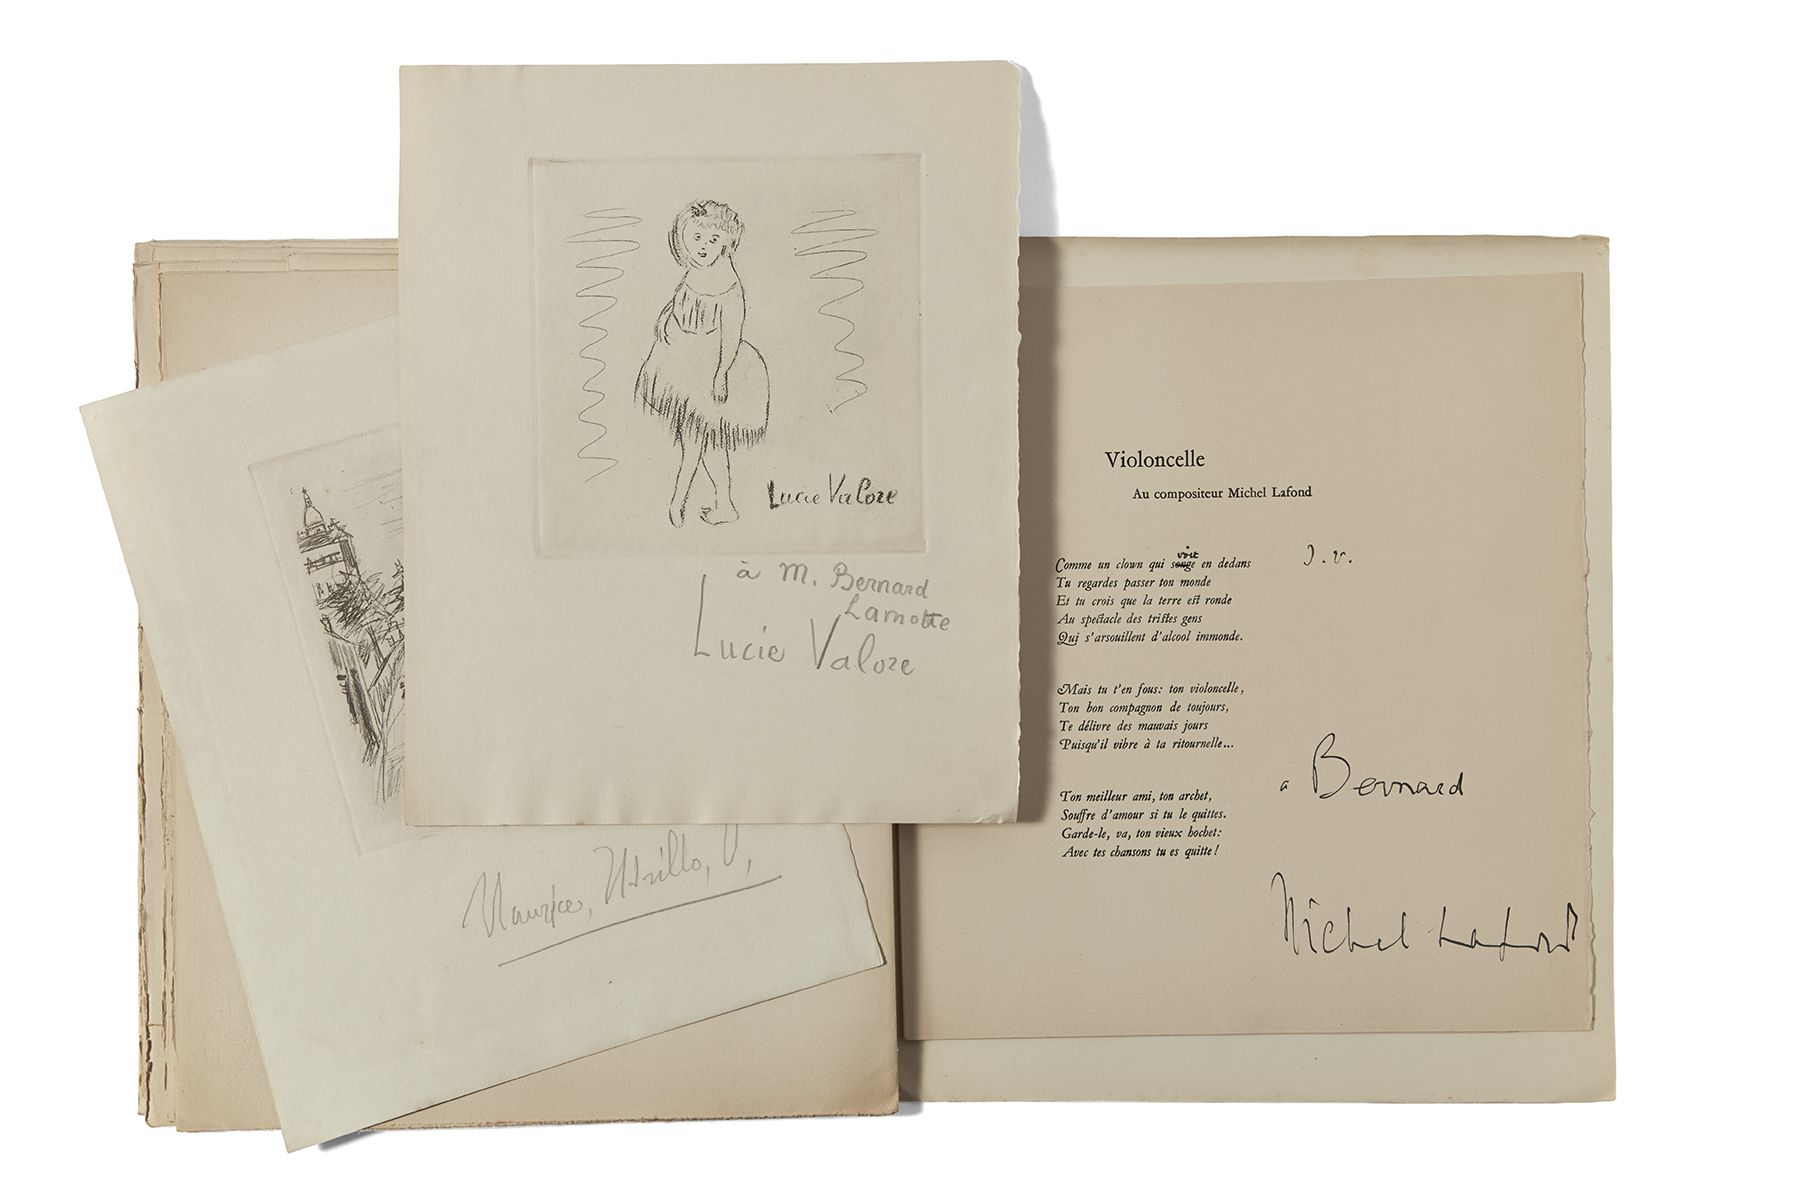 Lucie Valore
à M. Bernard
Lamotte
Lucie Valore
Maurice, Utrillo, V,
Violoncelle
Au compositeur Michel Lafond
voit
Comme un clown qui songe en dedans
J. V.
Tu regardes passer ton monde
Et tu crois que la terre est ronde
Au spectacle des tristes gens
Qui s'arsouillent d'alcool immonde.
Mais tu t'en fous: ton violoncelle,
Ton bon compagnon de toujours,
Te délivre des mauvais jours
Puisqu'il vibre à ta ritournelle...
Ton meilleur ami, ton archet,
Souffre d'amour si tu le quittes.
Garde-le, va, ton vieux hochet:
Avec tes chansons tu es quitte!
a Bernard
Michel Lafond